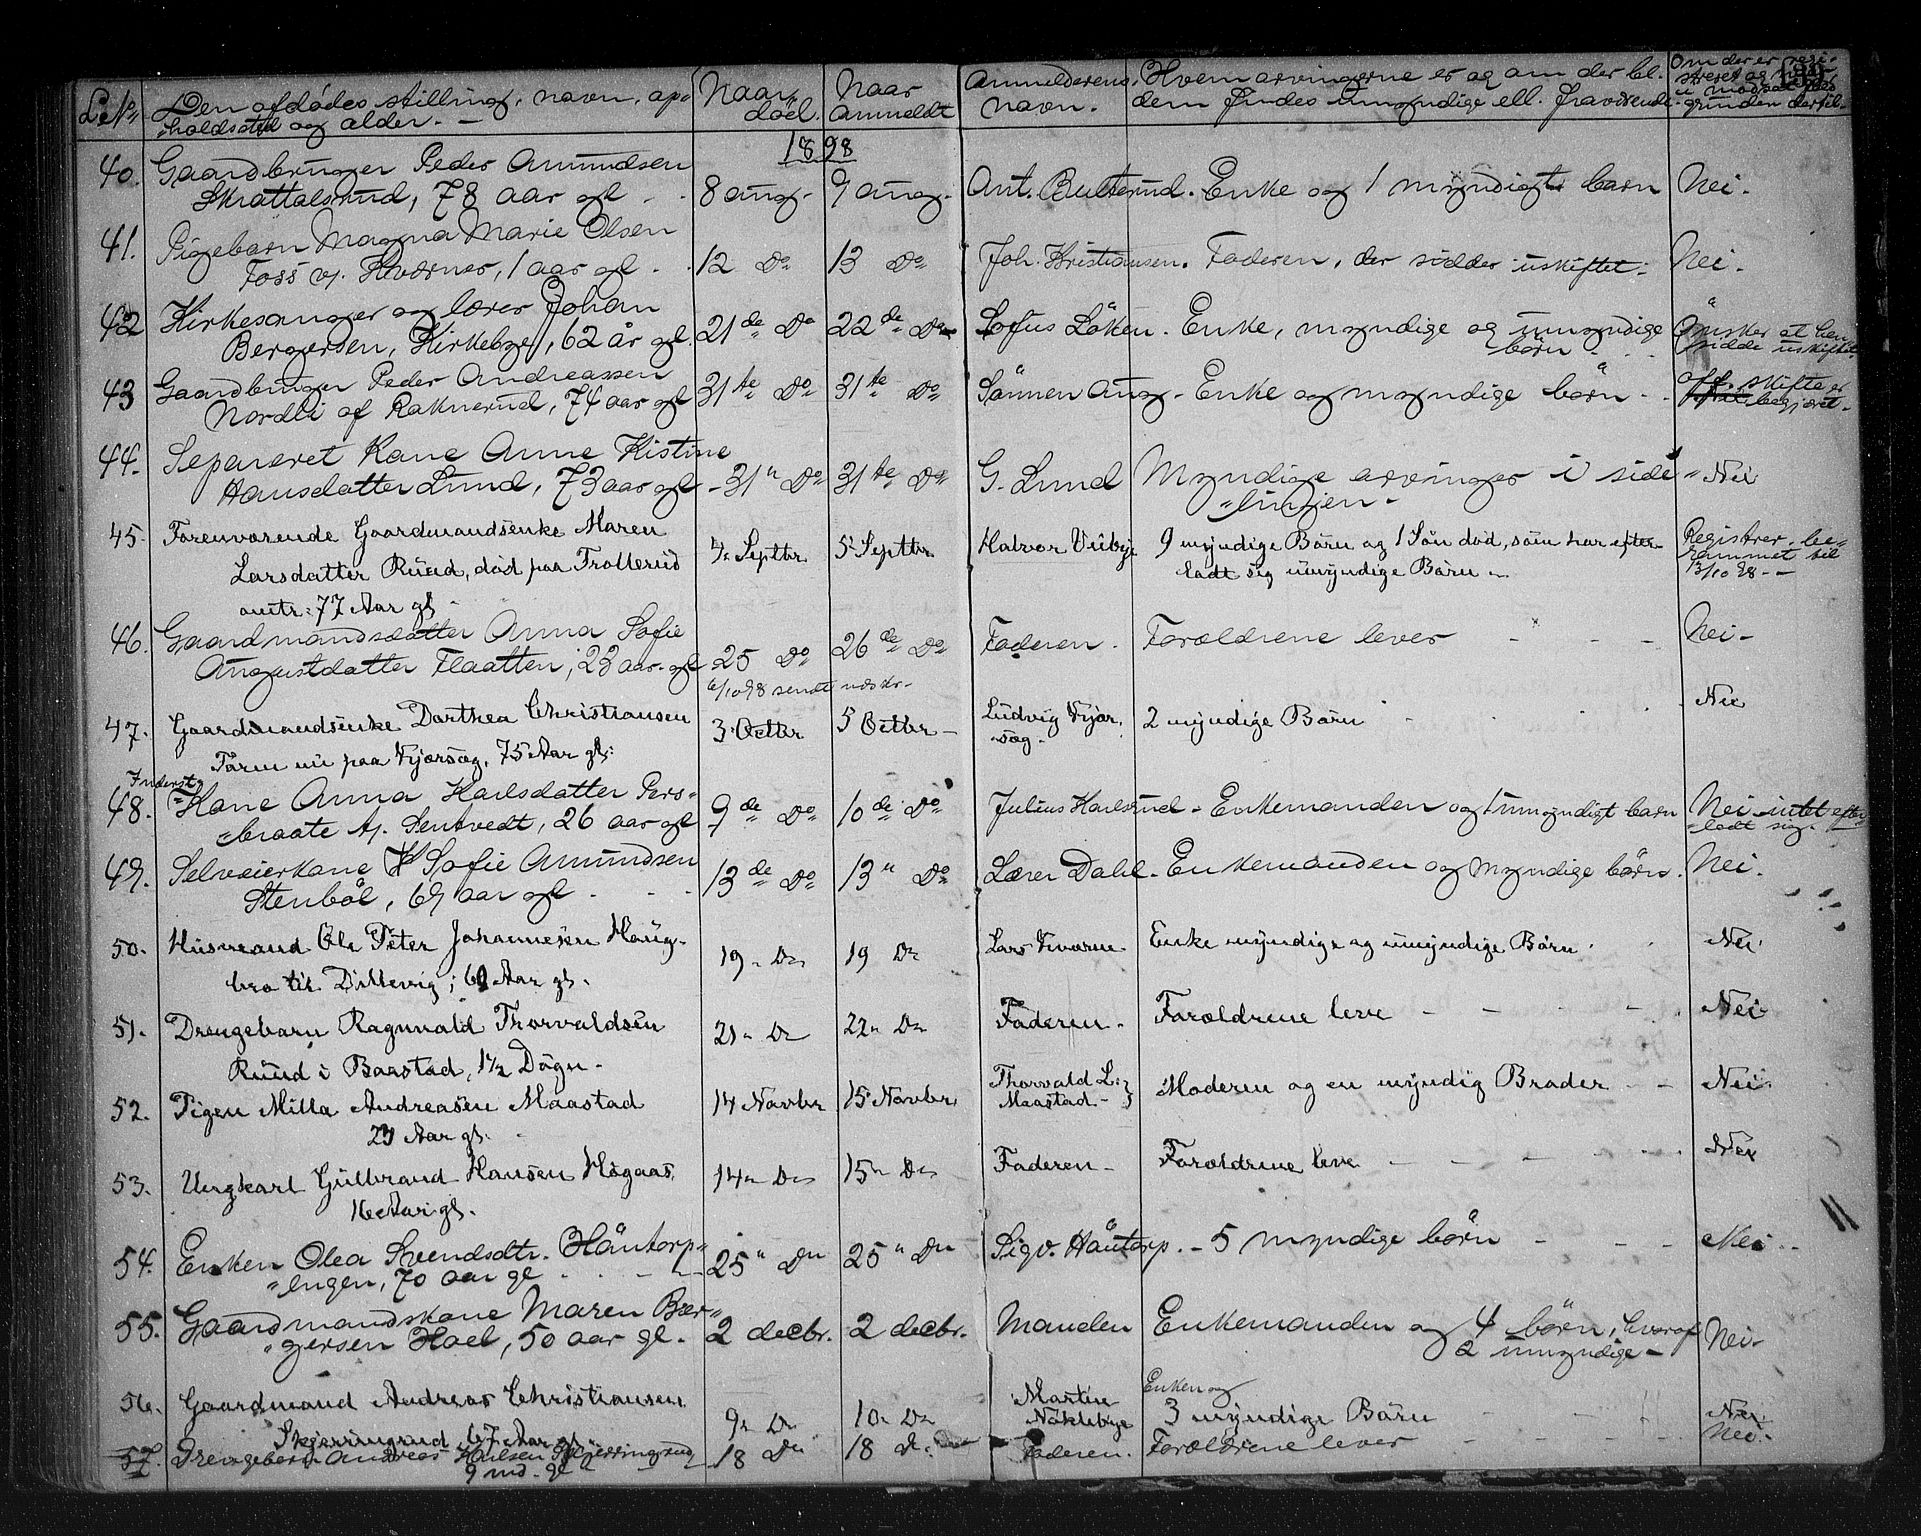 LNo Den afdødes stilling, navn, op- Naar død. Naar anmeldt Anmelderens navn. Hvem arvingerne er og om der bl. dem findes umyndige ell. fraværende.
holdssted og alder. —
1898
40. Gaardbruger Peder Amundsen
Skrattalsrud, 78 aar gl. 8 aug. 9 aug. Ant. Butterud. Enke og 1 myndigt barn Nei.
41. Pigebarn Magna Marie Olsen
Foss v. Kværner, 1 aar gl. 12 Do 13 Do Joh. Kristiansen. Faderen, der sidder uskiftet. Nei.
42 Kirkesanger og lærer Johan
Bergersen, Kirkebye, 62 år gl. 21de Do 22de Do Sofus Løken. Enke, myndige og umyndige børn Ønsker at hen sidde uskiftet
43 Gaardbruger Peder Andreassen
Nordli af Raknerud, 74 aar gl 31te Do 31te Do Sønnen Aug. Enke og myndige børn off. skifte er begjæret.
44. Separeret Kone Anne Kistine
Hansdatter Lund, 73 aar gl 31" Do 31te Do G. Lund Myndige arvinger i side-linjen. Nei
45. Forenværende Gaardmandsenke Maren
Larsdatter Ruud, død paa Trollerud 4. Septbr 5. Septbr. Halvor Viibye 9 myndige Børn og 1 Søn død, som har efter-
ladt sig umyndige Børn. Registrer. be-rammet til 13/10 98 - -
omtr. 77 Aar gl.
46. Gaardmandsdatter Anna Sofie
Augustdatter Flaatten, 23 aar gl 25 Do 26de Do Faderen. Forældrene lever Nei-
6/10 98 sendt
47. Gaardmandsenke Dorthea Christiansen
3 Octbr 5 Octbr Ludvig 2 myndige Børn Nei
nu paa 75 Aar gl.
Inderst
48. Kone Anna Karlsdatter Pers-
braate v. Sentvedt, 26 aar gl 9de Do 10de Do Julius Karlsrud. Enkemanden og 1 umyndigt barn Nei - intet efter-ladt sig.
49. Selveierkone Sofie Amundsen
Stenbøl, 69 aar gl 13de Do 13" Do Lærer Dahl. Enkemanden og myndige børn. Nei.
50. Husmand Ole Peter Johannesen Haug-
bro til Dillevig, Aar gl. 19 Do 19 Do Lars Enke myndige og umyndige Børn Nei
51. Drengebarn Ragnvald Thorvaldsen
Ruud i Baastad, 1½ Døgn. 21 Do 22 Do Faderen. Forældrene leve Nei
52. Pigen Milla Andreasen Maastad
23 Aar gl. 14 Novbr 15 Novbr Thorvald L. Maastad. Moderen og en myndig Broder Nei
53. Ungkarl Gulbrand Hansen Høgaas,
16 Aar gl. 14 Do 15 Do Faderen Forældrene leve Nei
54. Enken Olea Svendsdtr. Håntorp-
engen, 70 aar gl 25" Do 25" Do Sigv. Håntorp. 5 myndige børn Nei
55. Gaardmandskone Maren Ber-
gersen Hoel, 50 aar gl. 2 decbr. 2 decbr. Manden Enkemanden og 4 børn, hvoraf 2 umyndige - Nei-
56. Gaardmand Andreas Christiansen
Skjerringrud 67 Aar gl. 9 Do 10 Do Martin Nøklebye Enken og 3 myndige Børn Nei
57. Drengebarn Andreas Karlsen Skjerringrud
9 md. gl 18 Do 18 Do Faderen. Forældrene lever Nei.